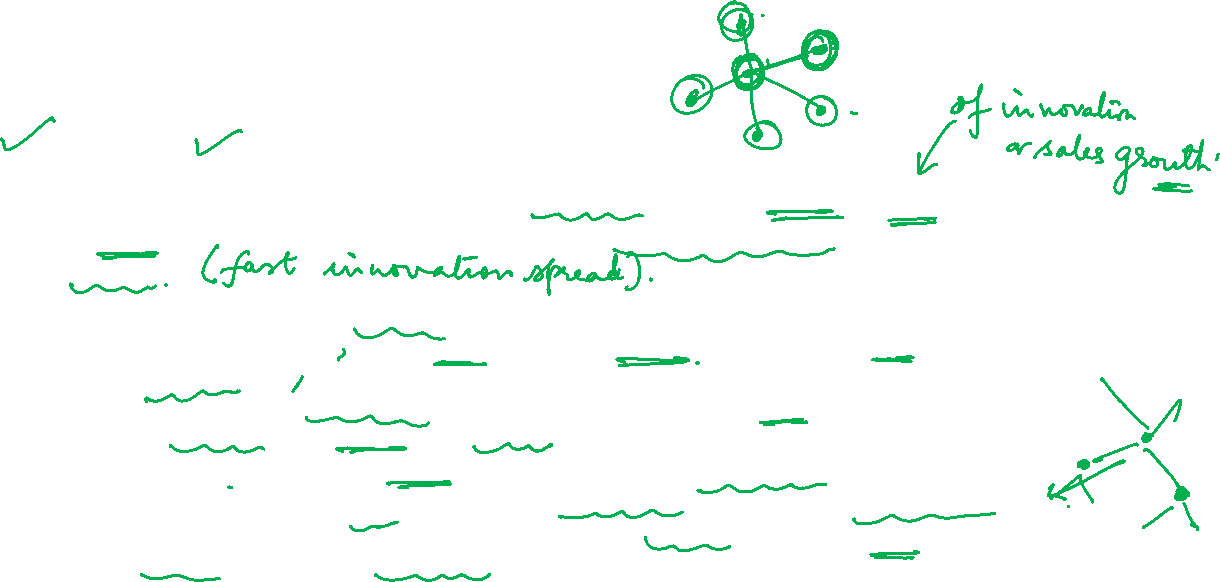 of innovation
or sales growth.
(fast innovation spread).